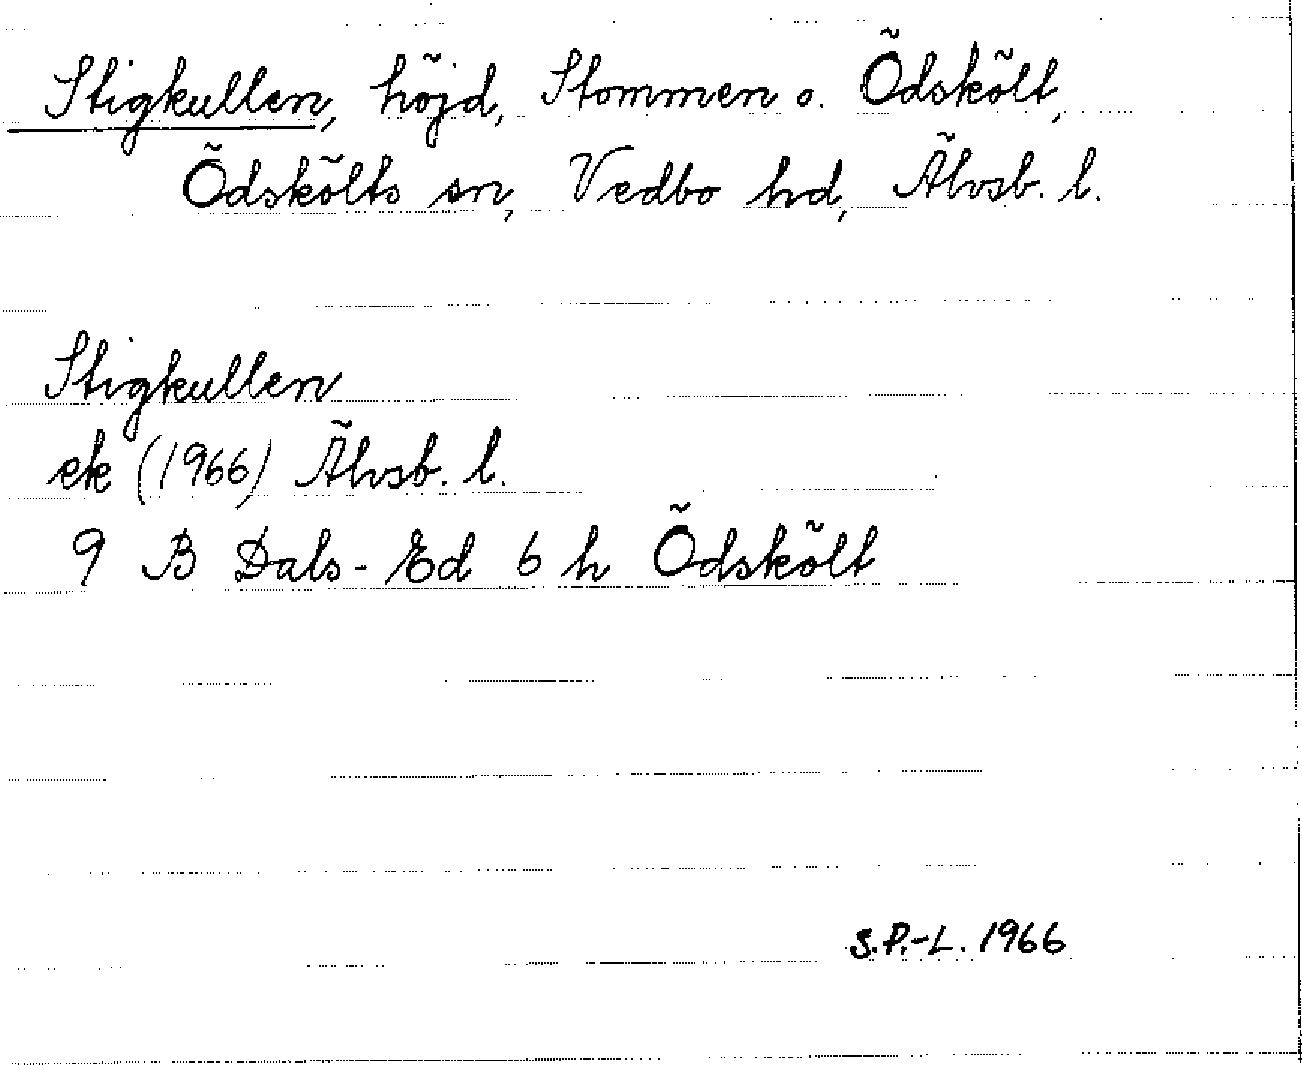 Stigkullen, höjd, Stommen o. Ödskölt,
Ödskölts sn, Vedbo hd, Älvsb. l.
Stigkullen
ek (1966) Älvsb. l.
9 B Dals-Ed 6 h Ödskölt
S.P.-L. 1966